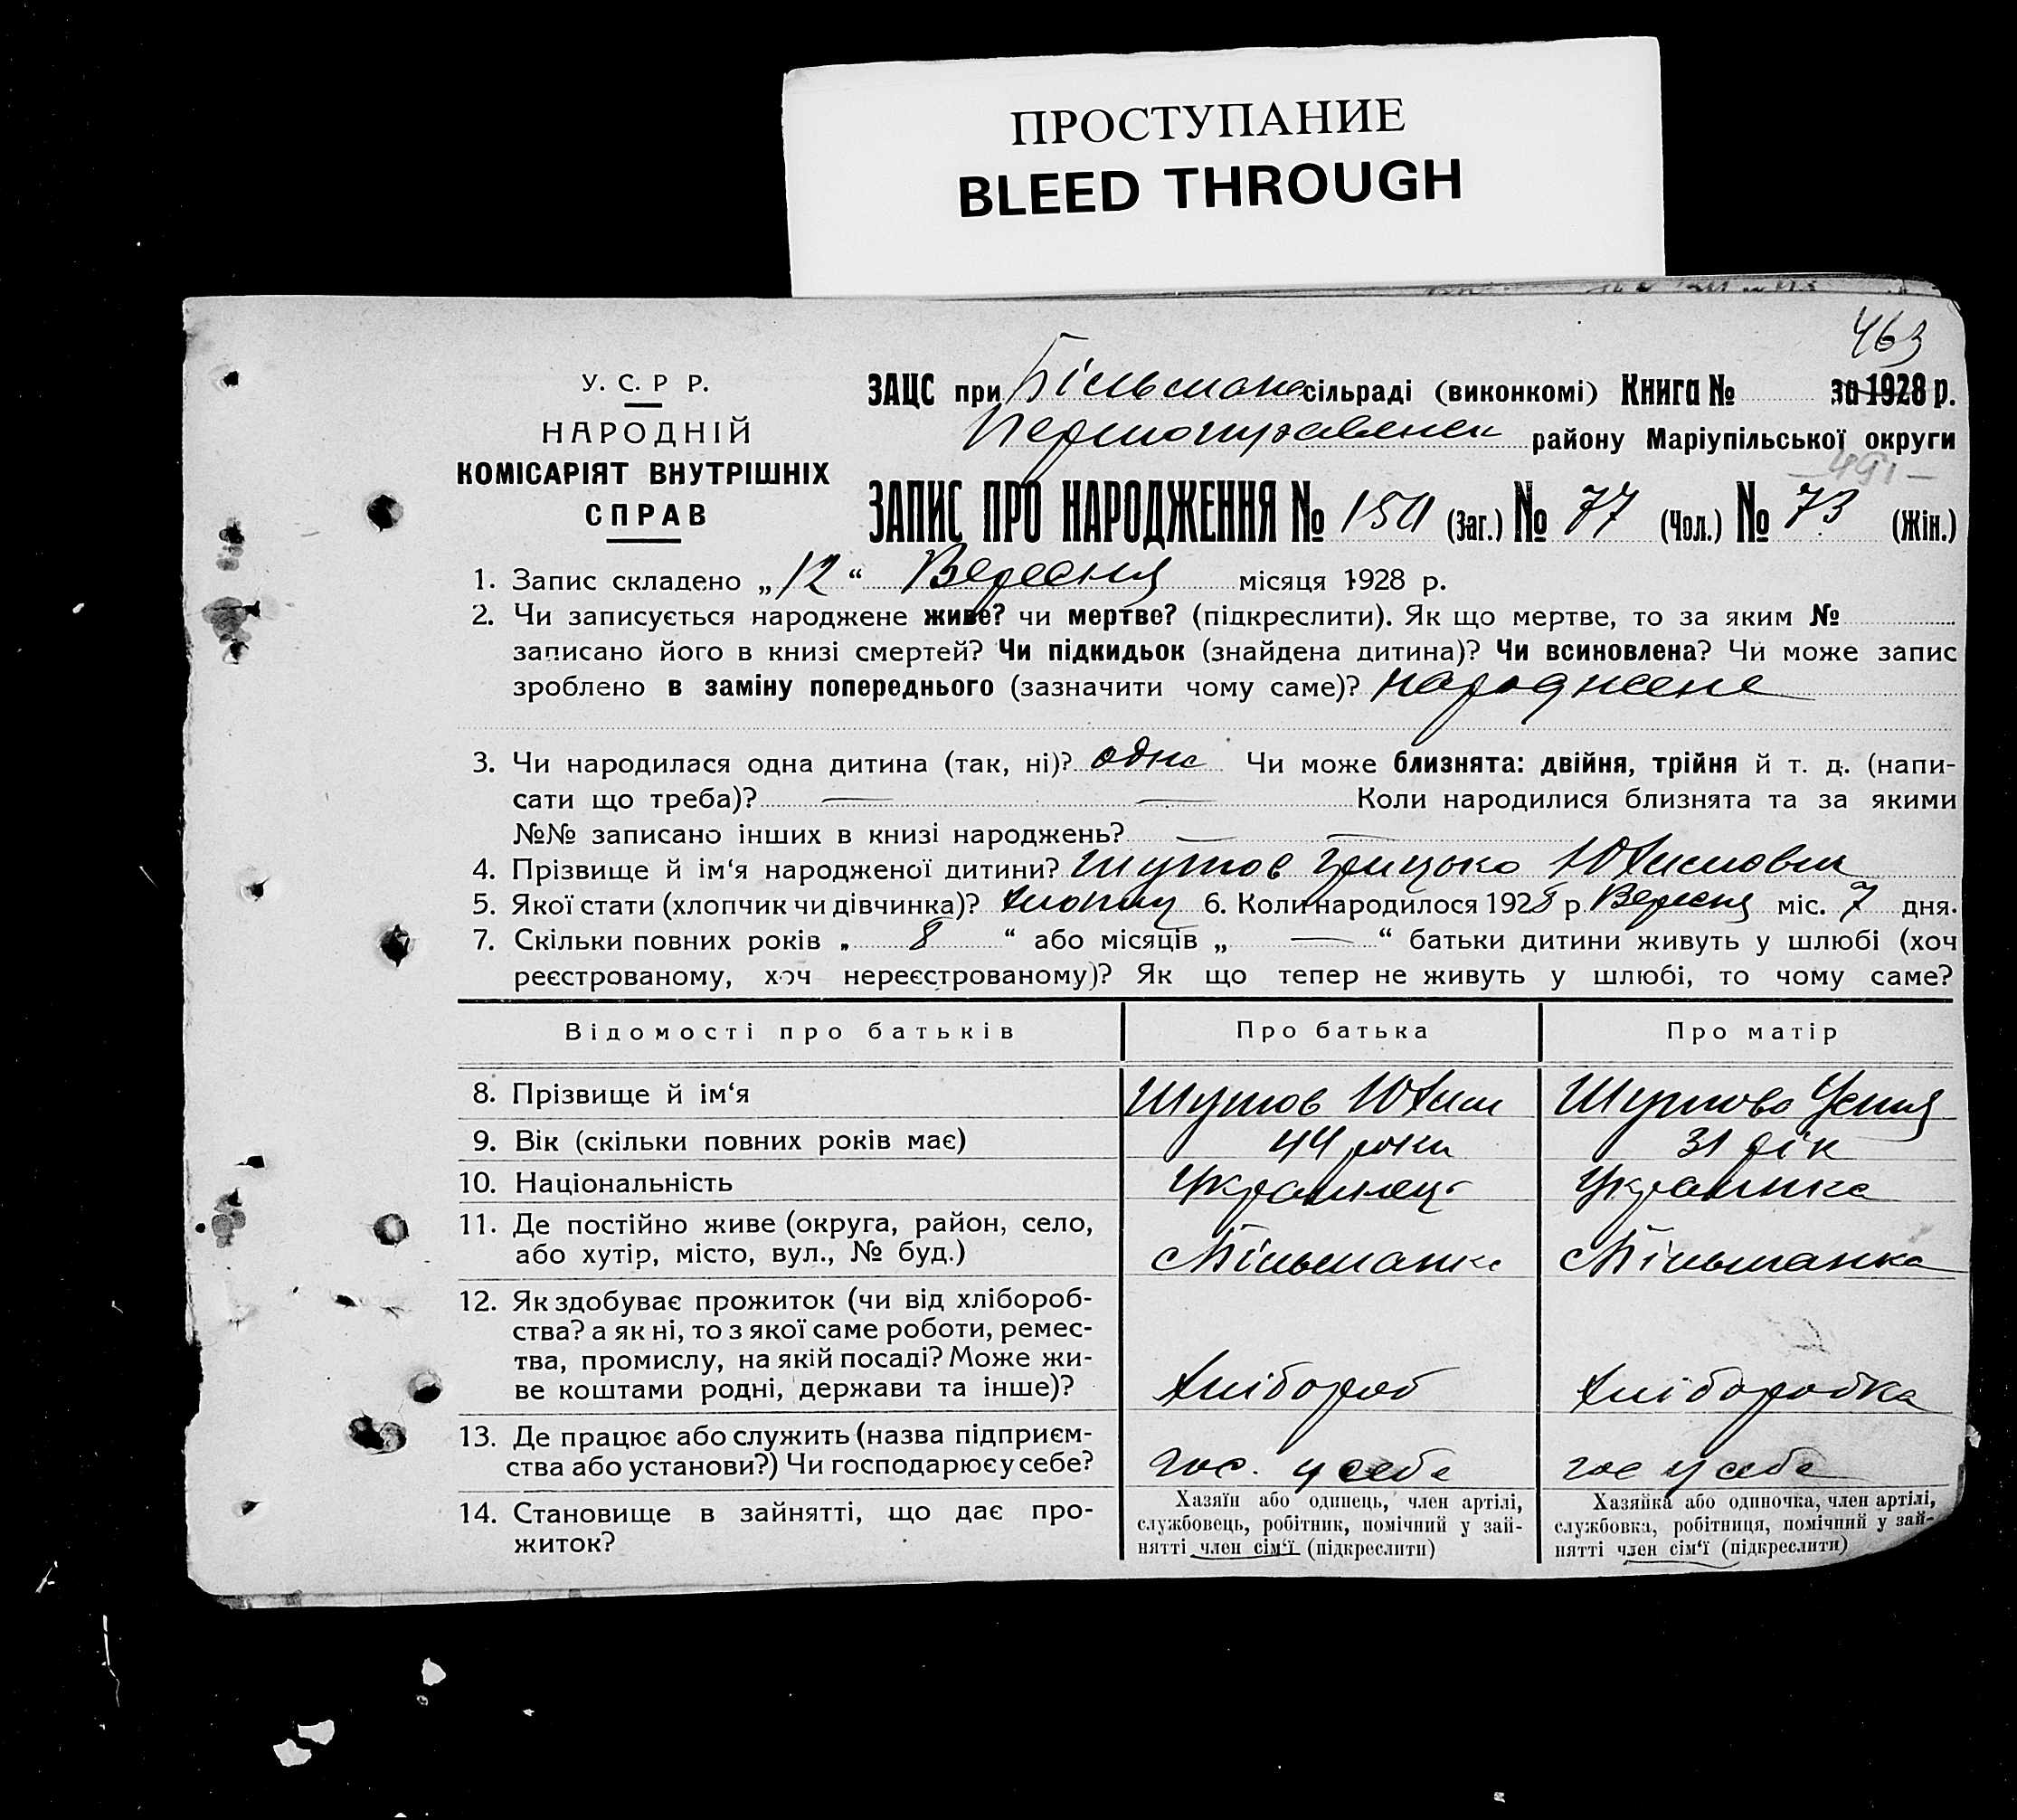 ПРОСТУПАНИЕ
BLEED THROUGH
463
У. С. Р Р.
НАРОДНІЙ
КОМІСАРІЯТ ВНУТРІШНІХ
СПРАВ
ЗАЦС при Більманс сільраді (виконкомі) Книга № за 1928 р.
району Маріупільської округи
491
ЗАПИС ПРО НАРОДЖЕННЯ № (Заг.) № 77 (Чол.) № 73 (Жін.)
1. Запис складено „12“ Вересня місяця 1928 р.
2. Чи записується народжене живе? чи мертве? (підкреслити). Як що мертве, то за яким №
записано його в книзі смертей? Чи підкидьок (знайдена дитина)? Чи всиновлена? Чи може запис
зроблено в заміну попереднього (зазначити чому саме)? народжене
3. Чи народилася одна дитина (так, ні)? одна Чи може близнята: двійня, трійня й т. д. (напи-
сати що треба)? — — Коли народилися близнята та за якими
№№ записано інших в книзі народжень? — —
4. Прізвище й ім‘я народженої дитини? Шутов Грицько Юхимович
5. Якої стати (хлопчик чи дівчинка)? 6. Коли народилося 1928 р. Вересня міс. 7 дня.
7. Скільки повних років „ 8 “ або місяців „ — “ батьки дитини живуть у шлюбі (хоч
реєстрованому, хоч нереєстрованому)? Як що тепер не живуть у шлюбі, то чому саме?
Відомості про батьків Про батька Про матір
8. Прізвище й ім‘я Шутов Юхим Шутова Устя
9. Вік (скільки повних років має) 44 роки 31 рік
10. Національність Українець Українка
11. Де постійно живе (округа, район, село,
або хутір, місто, вул., № буд.) с Більманка с Більманка
12. Як здобуває прожиток (чи від хлібороб-
ства? а як ні, то з якої саме роботи, ремес-
тва, промислу, на якій посаді? Може жи-
ве коштами родні, держави та інше)? Хлібороб Хліборобка
13. Де працює або служить (назва підприєм-
ства або установи?) Чи господарює у себе? гос. у себе гос у себе
14. Становище в зайнятті, що дає про-
житок?
Хазяїн або одинець, член артілі,
службовець, робітник, помічний у зай-
нятті член сім‘ї (підкреслити)
Хазяйка або одиночка, член артілі,
службовка, робітниця, помічний у зай-
нятті член сім‘ї (підкреслити)